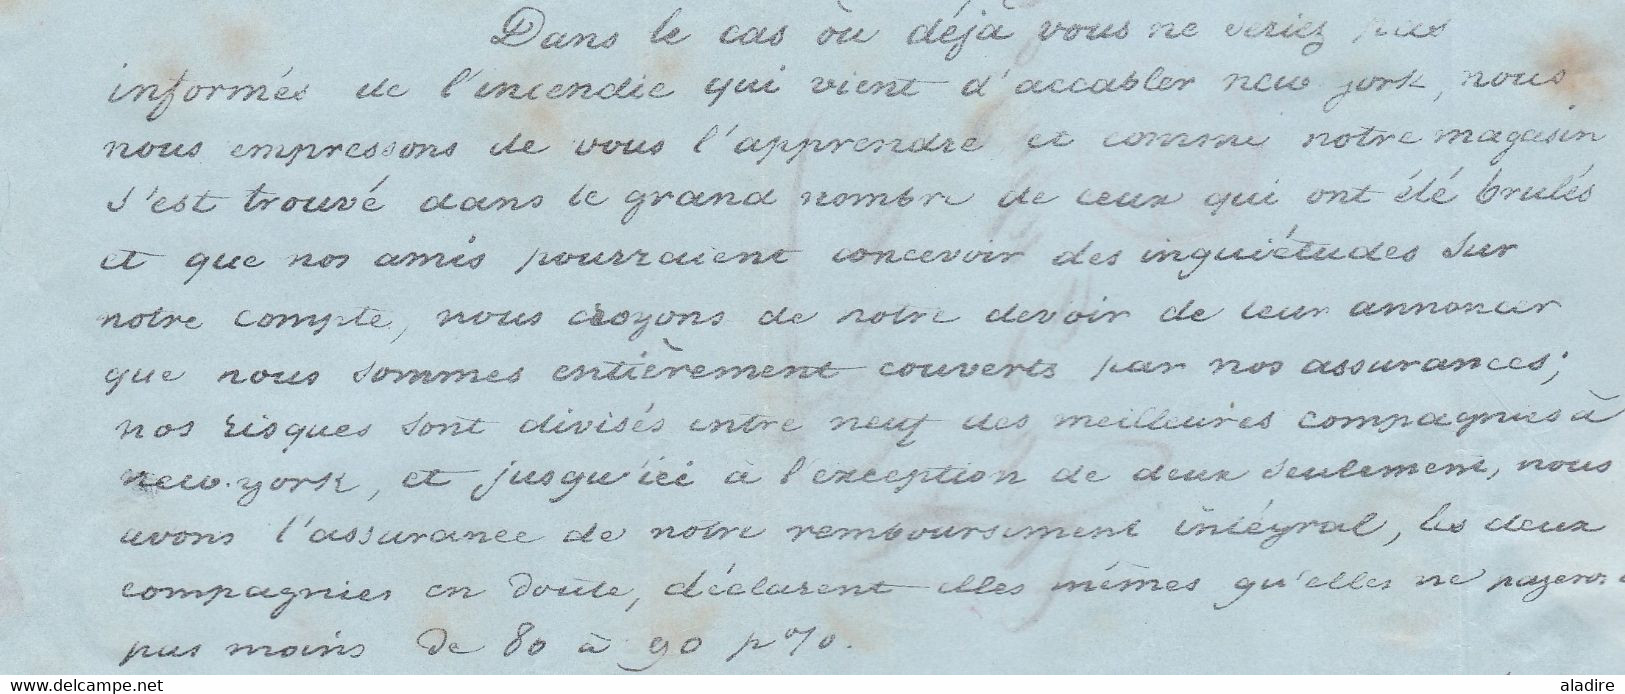 Dans le cas où déjà vous ne seriez pas
informés de l'incendie qui vient d'accabler new york, nous
nous empressons de vous l'apprendre et comme notre magasin
s'est trouvé dans le grand nombre de ceux qui ont été brulés
et que nos amis pourraient concevoir des inquiétudes sur
notre compte, nous croyons de notre devoir de leur annoncer
que nous sommes entièrement couverts par nos assurances;
nos risques sont divisés entre neuf des meilleures compagnies à
new-york, et jusqu'ici à l'exception de deux seulement, nous
avons l'assurance de notre remboursement intégral, les deux
compagnies en doute, déclarent elles mêmes qu'elles ne payeront
pas moins de 80 à 90 p%.
www.delcampe.net
aladire